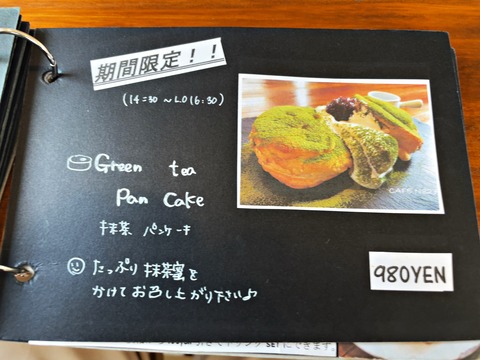 期間限定！！
(14:30 ～ L.O 16:30)
Green tea
Pan Cake
抹茶 パンケーキ
たっぷり 抹茶蜜を
かけて お召し上がり下さい♪
980YEN